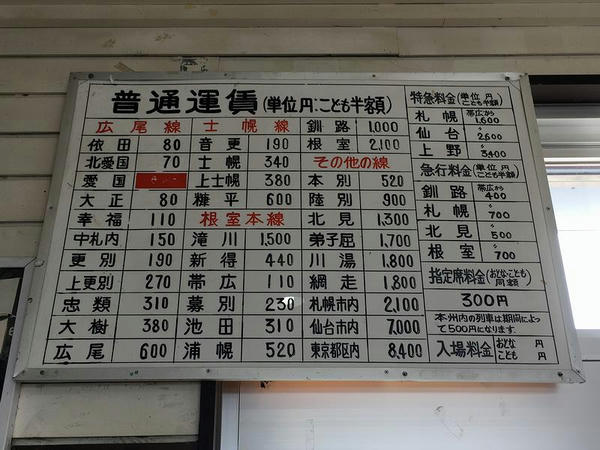 普通運賃(単位 円:こども半額)
広尾線
依田 80
北愛国 70
愛国
大正 80
幸福 110
中札内 150
更別 190
上更別 270
忠類 310
大樹 380
広尾 600
士幌線
音更 190
士幌 340
上士幌 380
糠平 600
根室本線
滝川 1,500
新得 440
帯広 110
幕別 230
池田 310
浦幌 520
釧路 1,000
根室 2,100
その他の線
本別 520
陸別 900
北見 1,300
弟子屈 1,700
川湯 1,800
網走 1,800
札幌市内 2,100
仙台市内 7,000
東京都区内 8,400
特急料金(単位 円 こども半額)
札幌 帯広から 1,600
仙台 〃 2,600
上野 〃 3,400
急行料金(単位 円 こども半額)
釧路 帯広から 400
札幌 〃 700
北見 〃 500
根室 〃 700
指定席料金(おとな・こども同額)
300円
本州内の列車は期間によっ
て500円になります.
入場料金 おとな 円
こども 円